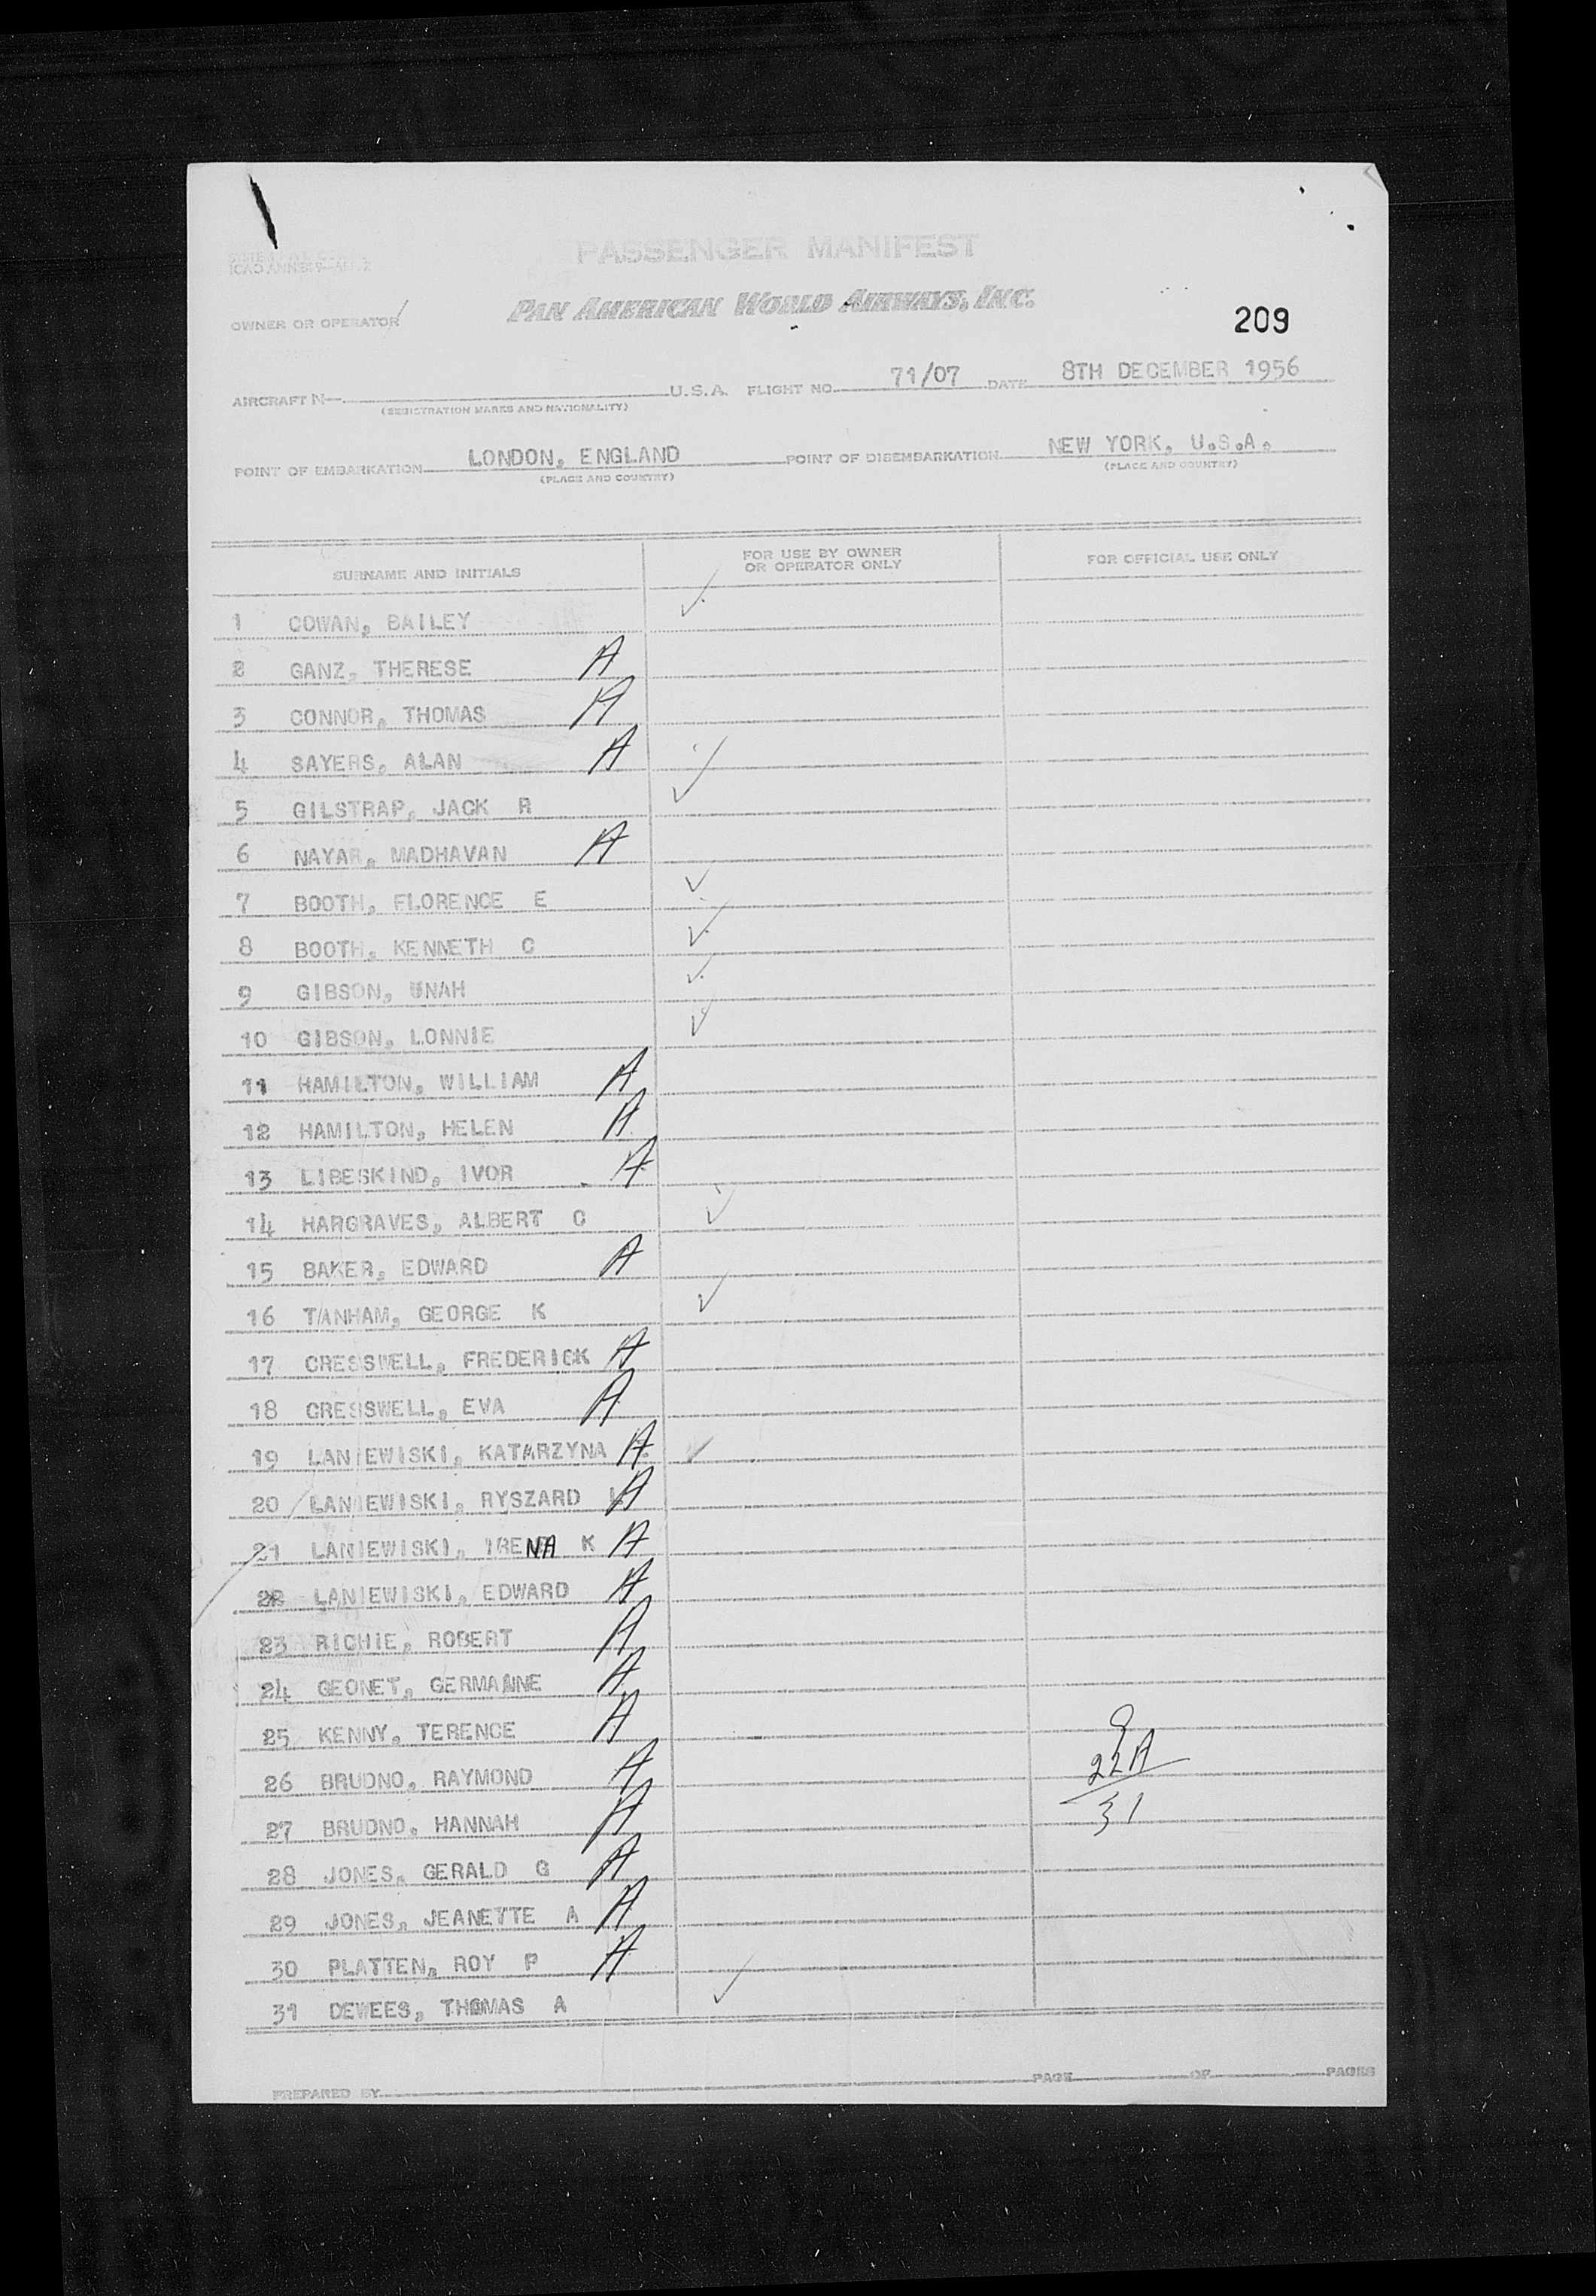 PASSENGER MANIFEST
ICAO ANNEX 9
PAN AMERICAN WORLD AIRWAYS, INC.
OWNER OR OPERATOR
209
AIRCRAFT N— U.S.A. FLIGHT NO. 71/07 DATE 8TH DECEMBER 1956
(REGISTRATION MARKS AND NATIONALITY)
POINT OF EMBARKATION LONDON, ENGLAND POINT OF DISEMBARKATION NEW YORK, U.S.A.
(PLACE AND COUNTRY) (PLACE AND COUNTRY)
SURNAME AND INITIALS FOR USE BY OWNER OR OPERATOR ONLY FOR OFFICIAL USE ONLY
1 COWAN, BAILEY ✓
2 GANZ, THERESE A
3 CONNOR, THOMAS A
4 SAYERS, ALAN A
5 GILSTRAP, JACK R ✓
6 NAYAR, MADHAVAN A
7 BOOTH, FLORENCE E ✓
8 BOOTH, KENNETH C ✓
9 GIBSON, UNAH ✓
10 GIBSON, LONNIE ✓
11 HAMILTON, WILLIAM A
12 HAMILTON, HELEN A
13 LIBESKIND, IVOR A
14 HARGRAVES, ALBERT C ✓
15 BAKER, EDWARD A
16 TANHAM, GEORGE K ✓
17 CRESSWELL, FREDERICK A
18 CRESSWELL, EVA A
19 LANIEWISKI, KATARZYNA A ✓
20 LANIEWISKI, RYSZARD L A
21 LANIEWISKI, IRENA K A
22 LANIEWISKI, EDWARD A
23 RICHIE, ROBERT A
24 GEONET, GERMAINE A
25 KENNY, TERENCE A
9
26 BRUDNO, RAYMOND A 22A
27 BRUDNO, HANNAH A 31
28 JONES, GERALD G A
29 JONES, JEANETTE A A
30 PLATTEN, ROY P A
31 DEWEES, THOMAS A ✓
PREPARED BY PAGE OF PAGES